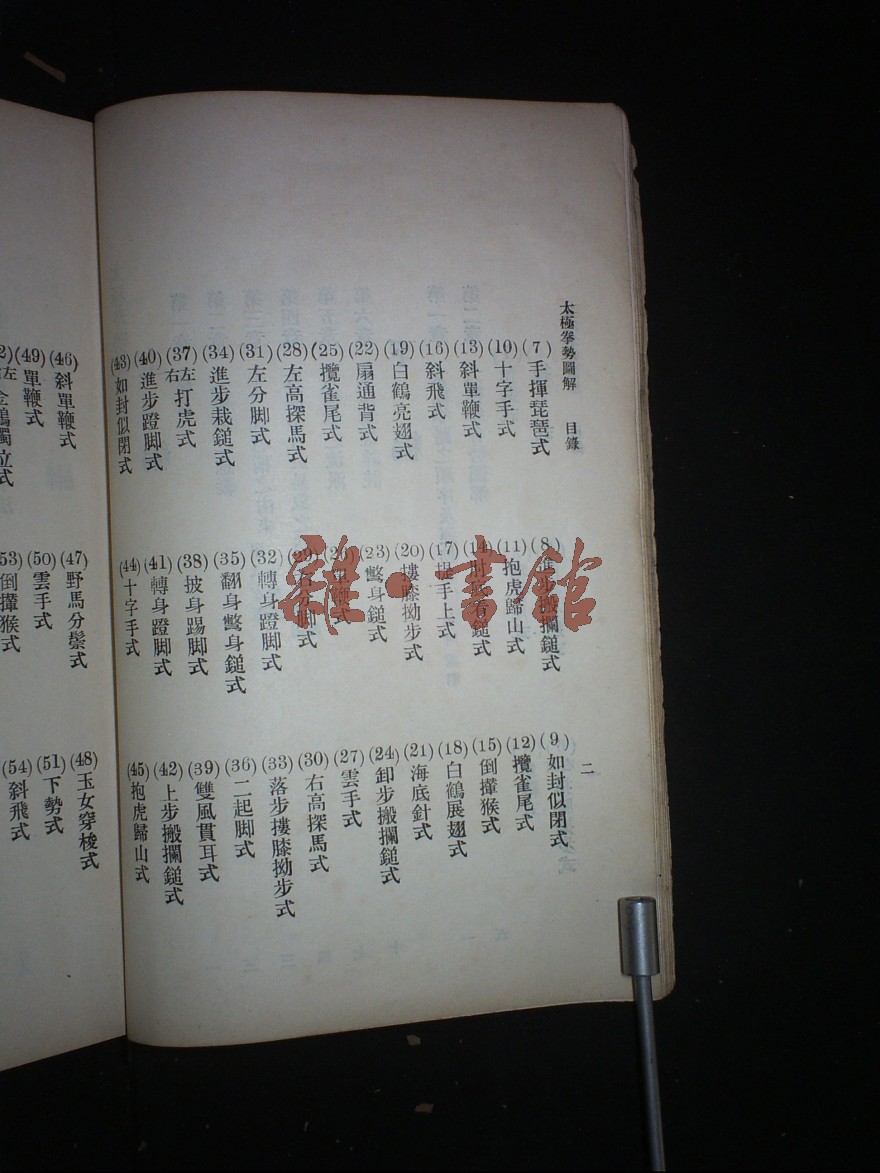 太極拳勢圖解　目錄　二
(7)手揮琵琶式　(8)進步搬攔鎚式　(9)如封似閉式
(10)十字手式　(11)抱虎歸山式　(12)攬雀尾式
(13)斜單鞭式　(14)肘底看鎚式　(15)倒攆猴式
(16)斜飛式　(17)提手上式　(18)白鶴展翅式
(19)白鶴亮翅式　(20)摟膝拗步式　(21)海底針式
(22)扇通背式　(23)撇身鎚式　(24)卸步搬攔鎚式
(25)攬雀尾式　(26)單鞭式　(27)雲手式
(28)左高探馬式　(29)右分脚式　(30)右高探馬式
(31)左分脚式　(32)轉身蹬脚式　(33)落步摟膝拗步式
(34)進步栽鎚式　(35)翻身撇身鎚式　(36)二起脚式
(37)左右打虎式　(38)披身踢脚式　(39)雙風貫耳式
(40)進步蹬脚式　(41)轉身蹬脚式　(42)上步搬攔鎚式
(43)如封似閉式　(44)十字手式　(45)抱虎歸山式
(46)斜單鞭式　(47)野馬分鬃式　(48)玉女穿梭式
(49)單鞭式　(50)雲手式　(51)下勢式
2)左　金鷄獨立式　53)倒攆猴式　(54)斜飛式
雜·書館